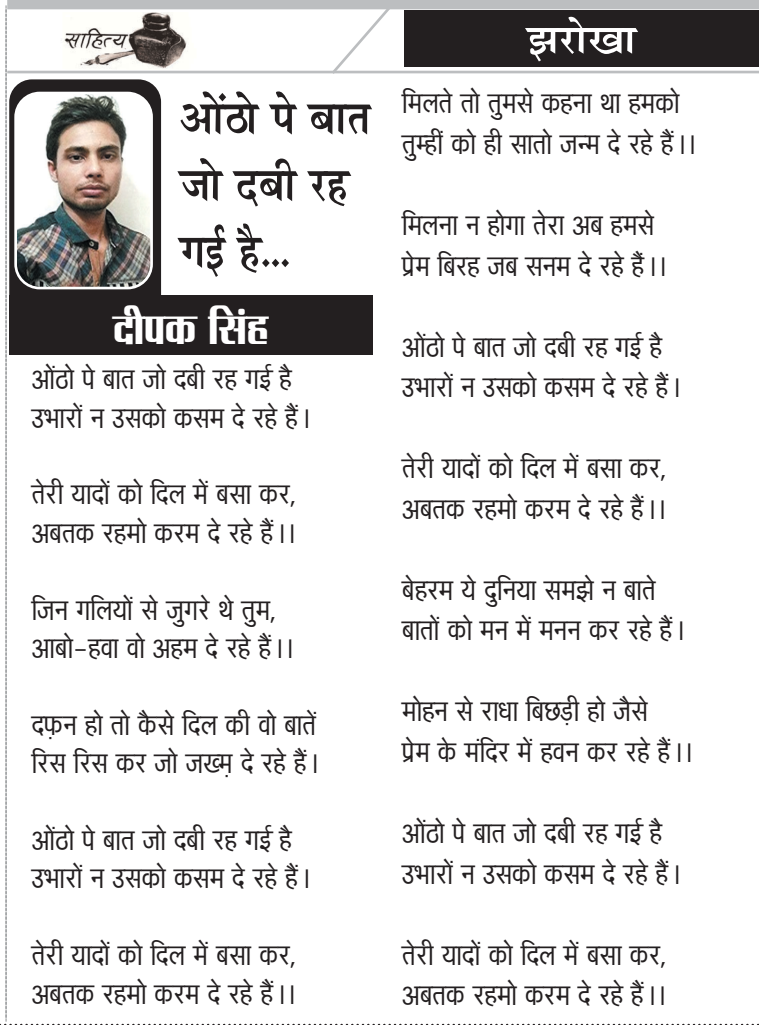 साहित्य
झरोखा
ओंठो पे बात
जो दबी रह
गई है...
दीपक सिंह
ओंठो पे बात जो दबी रह गई है
उभारों न उसको कसम दे रहे हैं।
तेरी यादों को दिल में बसा कर,
अबतक रहमो करम दे रहे हैं।।
जिन गलियों से जुगरे थे तुम,
आबो-हवा वो अहम दे रहे हैं।।
दफ़न हो तो कैसे दिल की वो बातें
रिस रिस कर जो जख्म़ दे रहे हैं।
ओंठो पे बात जो दबी रह गई है
उभारों न उसको कसम दे रहे हैं।
तेरी यादों को दिल में बसा कर,
अबतक रहमो करम दे रहे हैं।।
मिलते तो तुमसे कहना था हमको
तुम्हीं को ही सातो जन्म दे रहे हैं।।
मिलना न होगा तेरा अब हमसे
प्रेम बिरह जब सनम दे रहे हैं।।
ओंठो पे बात जो दबी रह गई है
उभारों न उसको कसम दे रहे हैं।
तेरी यादों को दिल में बसा कर,
अबतक रहमो करम दे रहे हैं।।
बेहरम ये दुनिया समझे न बाते
बातों को मन में मनन कर रहे हैं।
मोहन से राधा बिछड़ी हो जैसे
प्रेम के मंदिर में हवन कर रहे हैं।।
ओंठो पे बात जो दबी रह गई है
उभारों न उसको कसम दे रहे हैं।
तेरी यादों को दिल में बसा कर,
अबतक रहमो करम दे रहे हैं।।